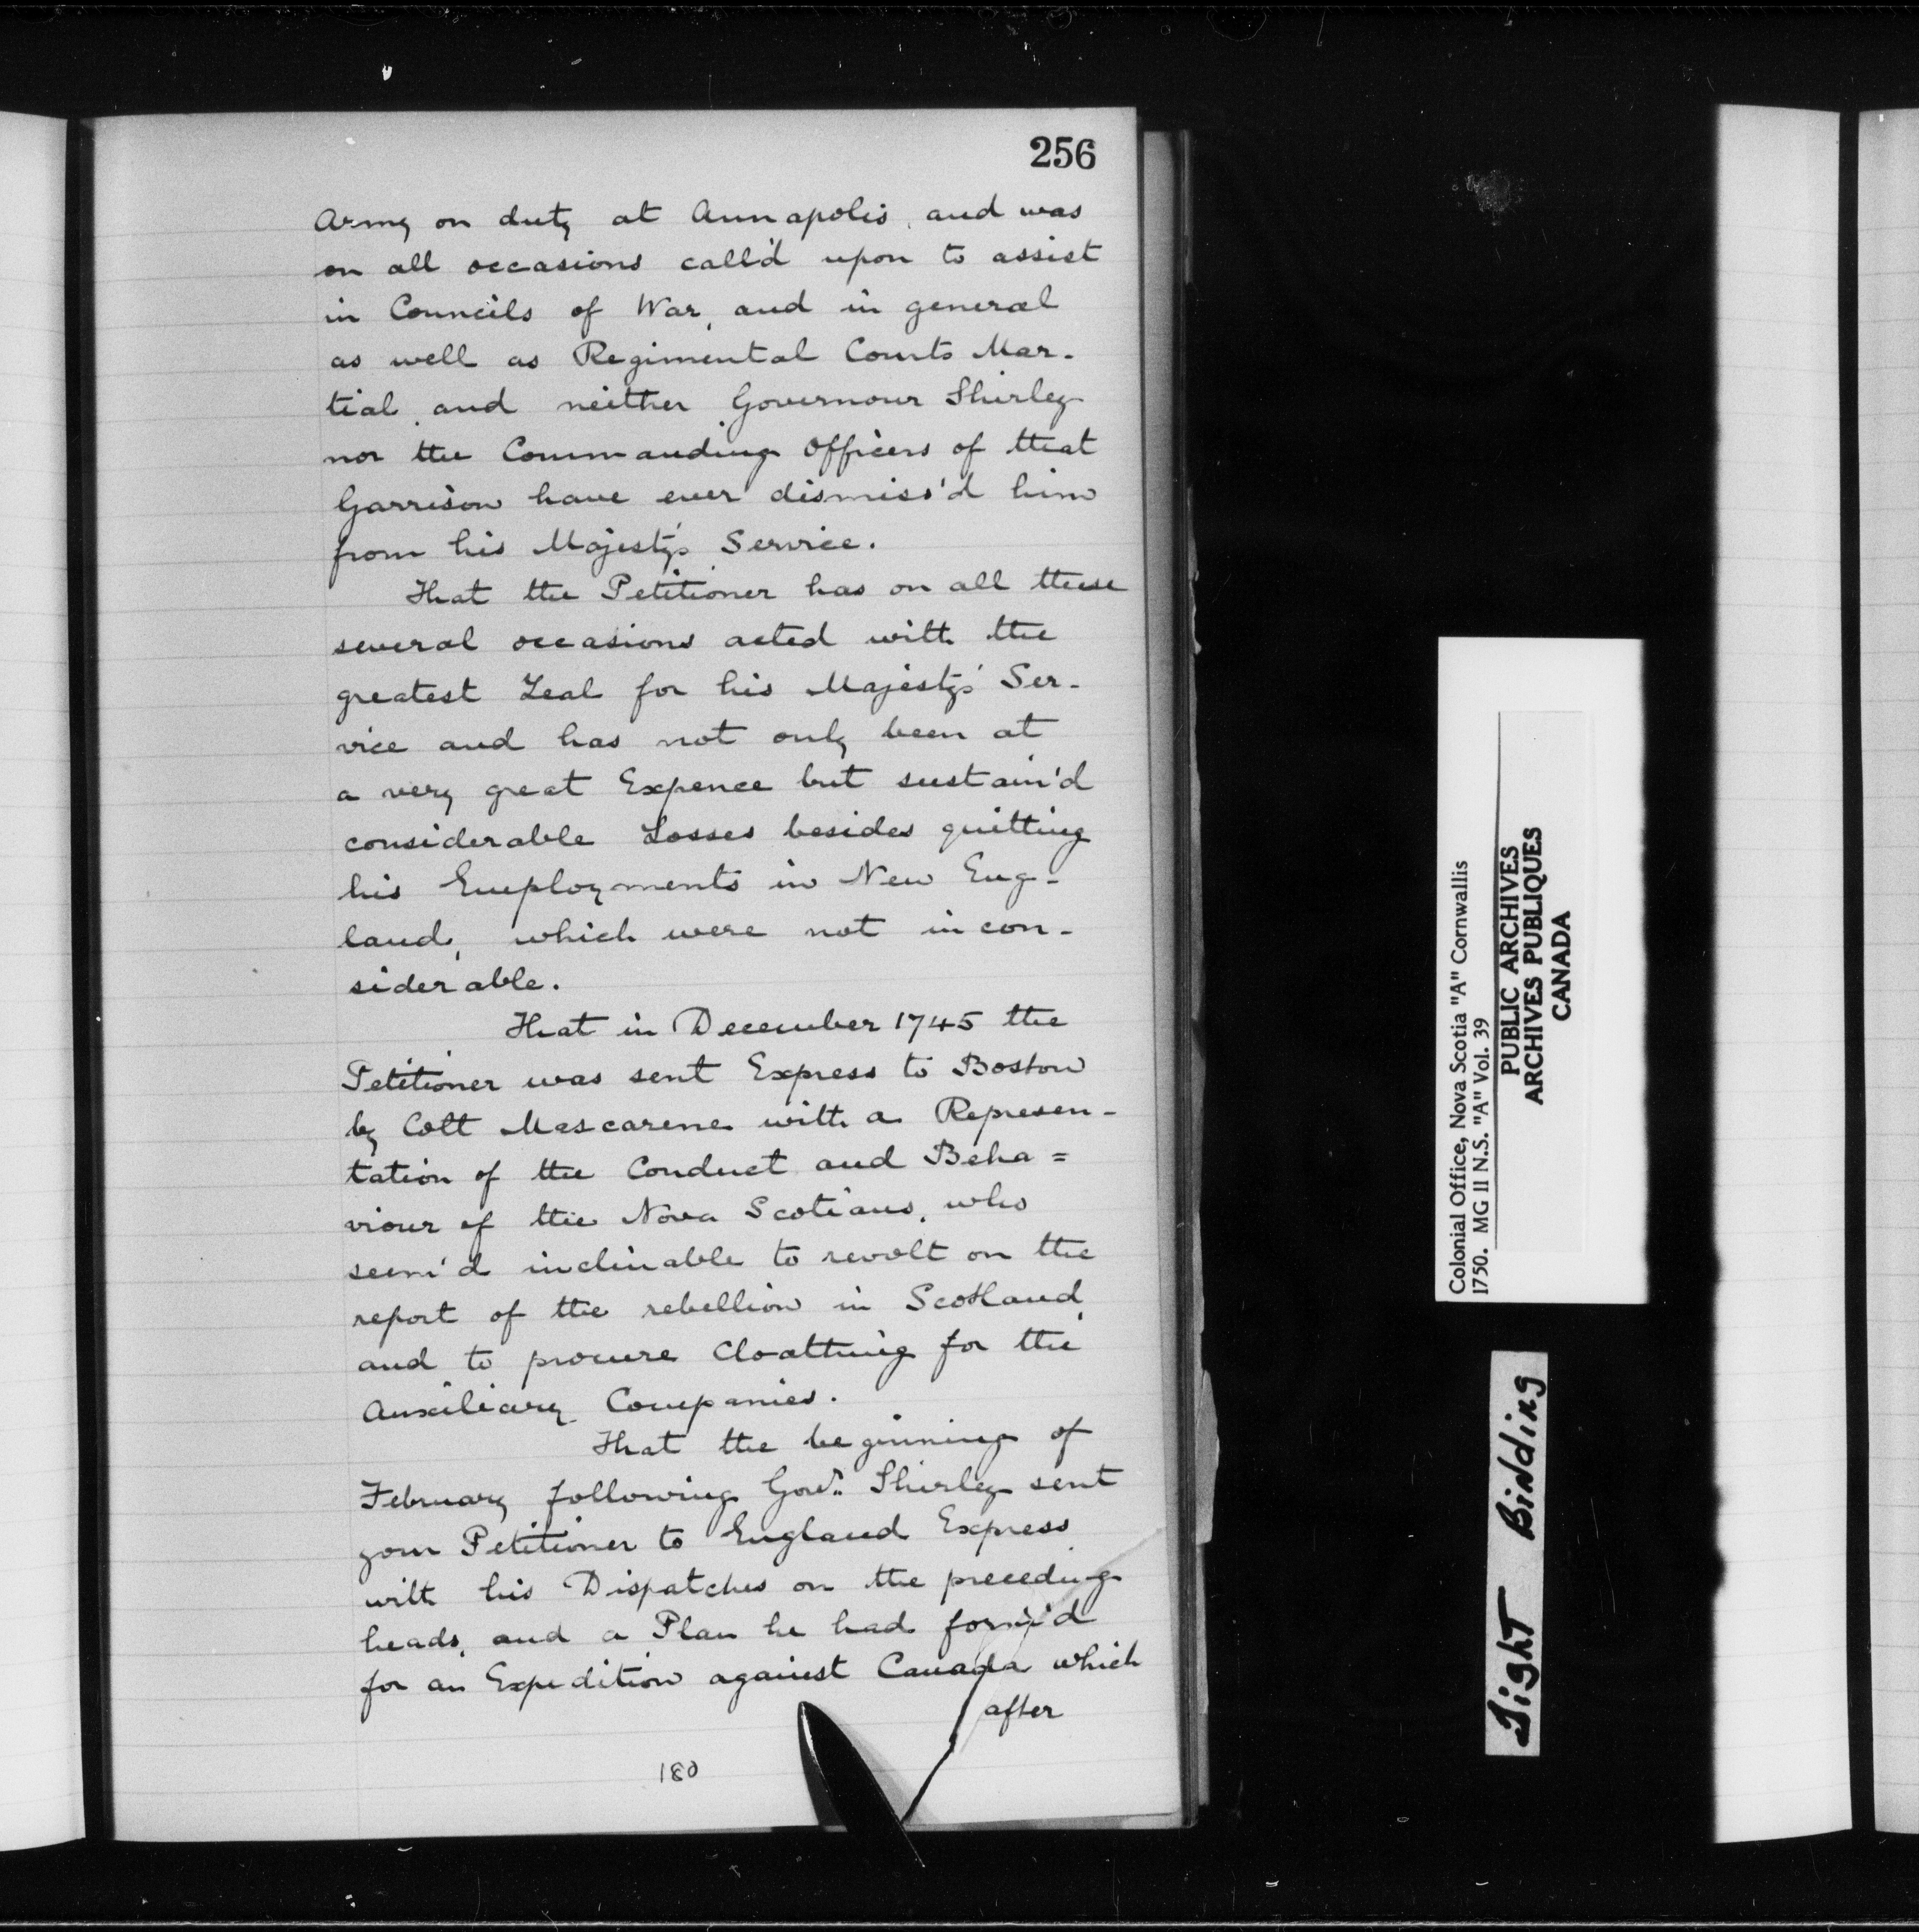 256
Army on duty at Annapolis, and was
on all occasions call'd upon to assist
in Councils of War, and in general
as well as Regimental Courts Mar-
tial, and neither Governour Shirley
nor the Commanding Officers of that
Garrison have ever dismiss'd him
from his Majesty's Service.
That the Petitioner has on all these
several occasions acted with the
greatest Zeal for his Majesty's Ser-
vice and has not only been at
a very great Expence but sustain'd
considerable Losses besides quitting
his Employments in New Eng-
land, which were not incon-
siderable.
That in December 1745 the
Petitioner was sent Express to Boston
by Coll Mascarene with a Represen-
tation of the Conduct and Beha=
viour of the Nova Scotians, who
seem'd inclinable to revolt on the
report of the rebellion in Scotland,
and to procure Cloathing for the
Auxiliary Companies.
That the beginning of
February following Govr. Shirley sent
your Petitioner to England Express
with his Dispatches on the preceding
heads, and a Plan he had form'd
for an Expedition against Canada which
after
180
Colonial Office, Nova Scotia "A" Cornwallis
1750. MG II N.S. "A" Vol. 39
PUBLIC ARCHIVES
ARCHIVES PUBLIQUES
CANADA
Tight Binding